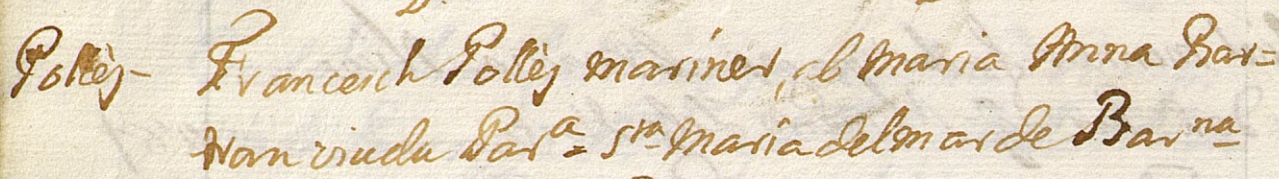 Pollès - Francesch Pollès mariner, ab Maria Anna Bar=
tran viuda Par^a = S^ta Maria del mar de Bar^na